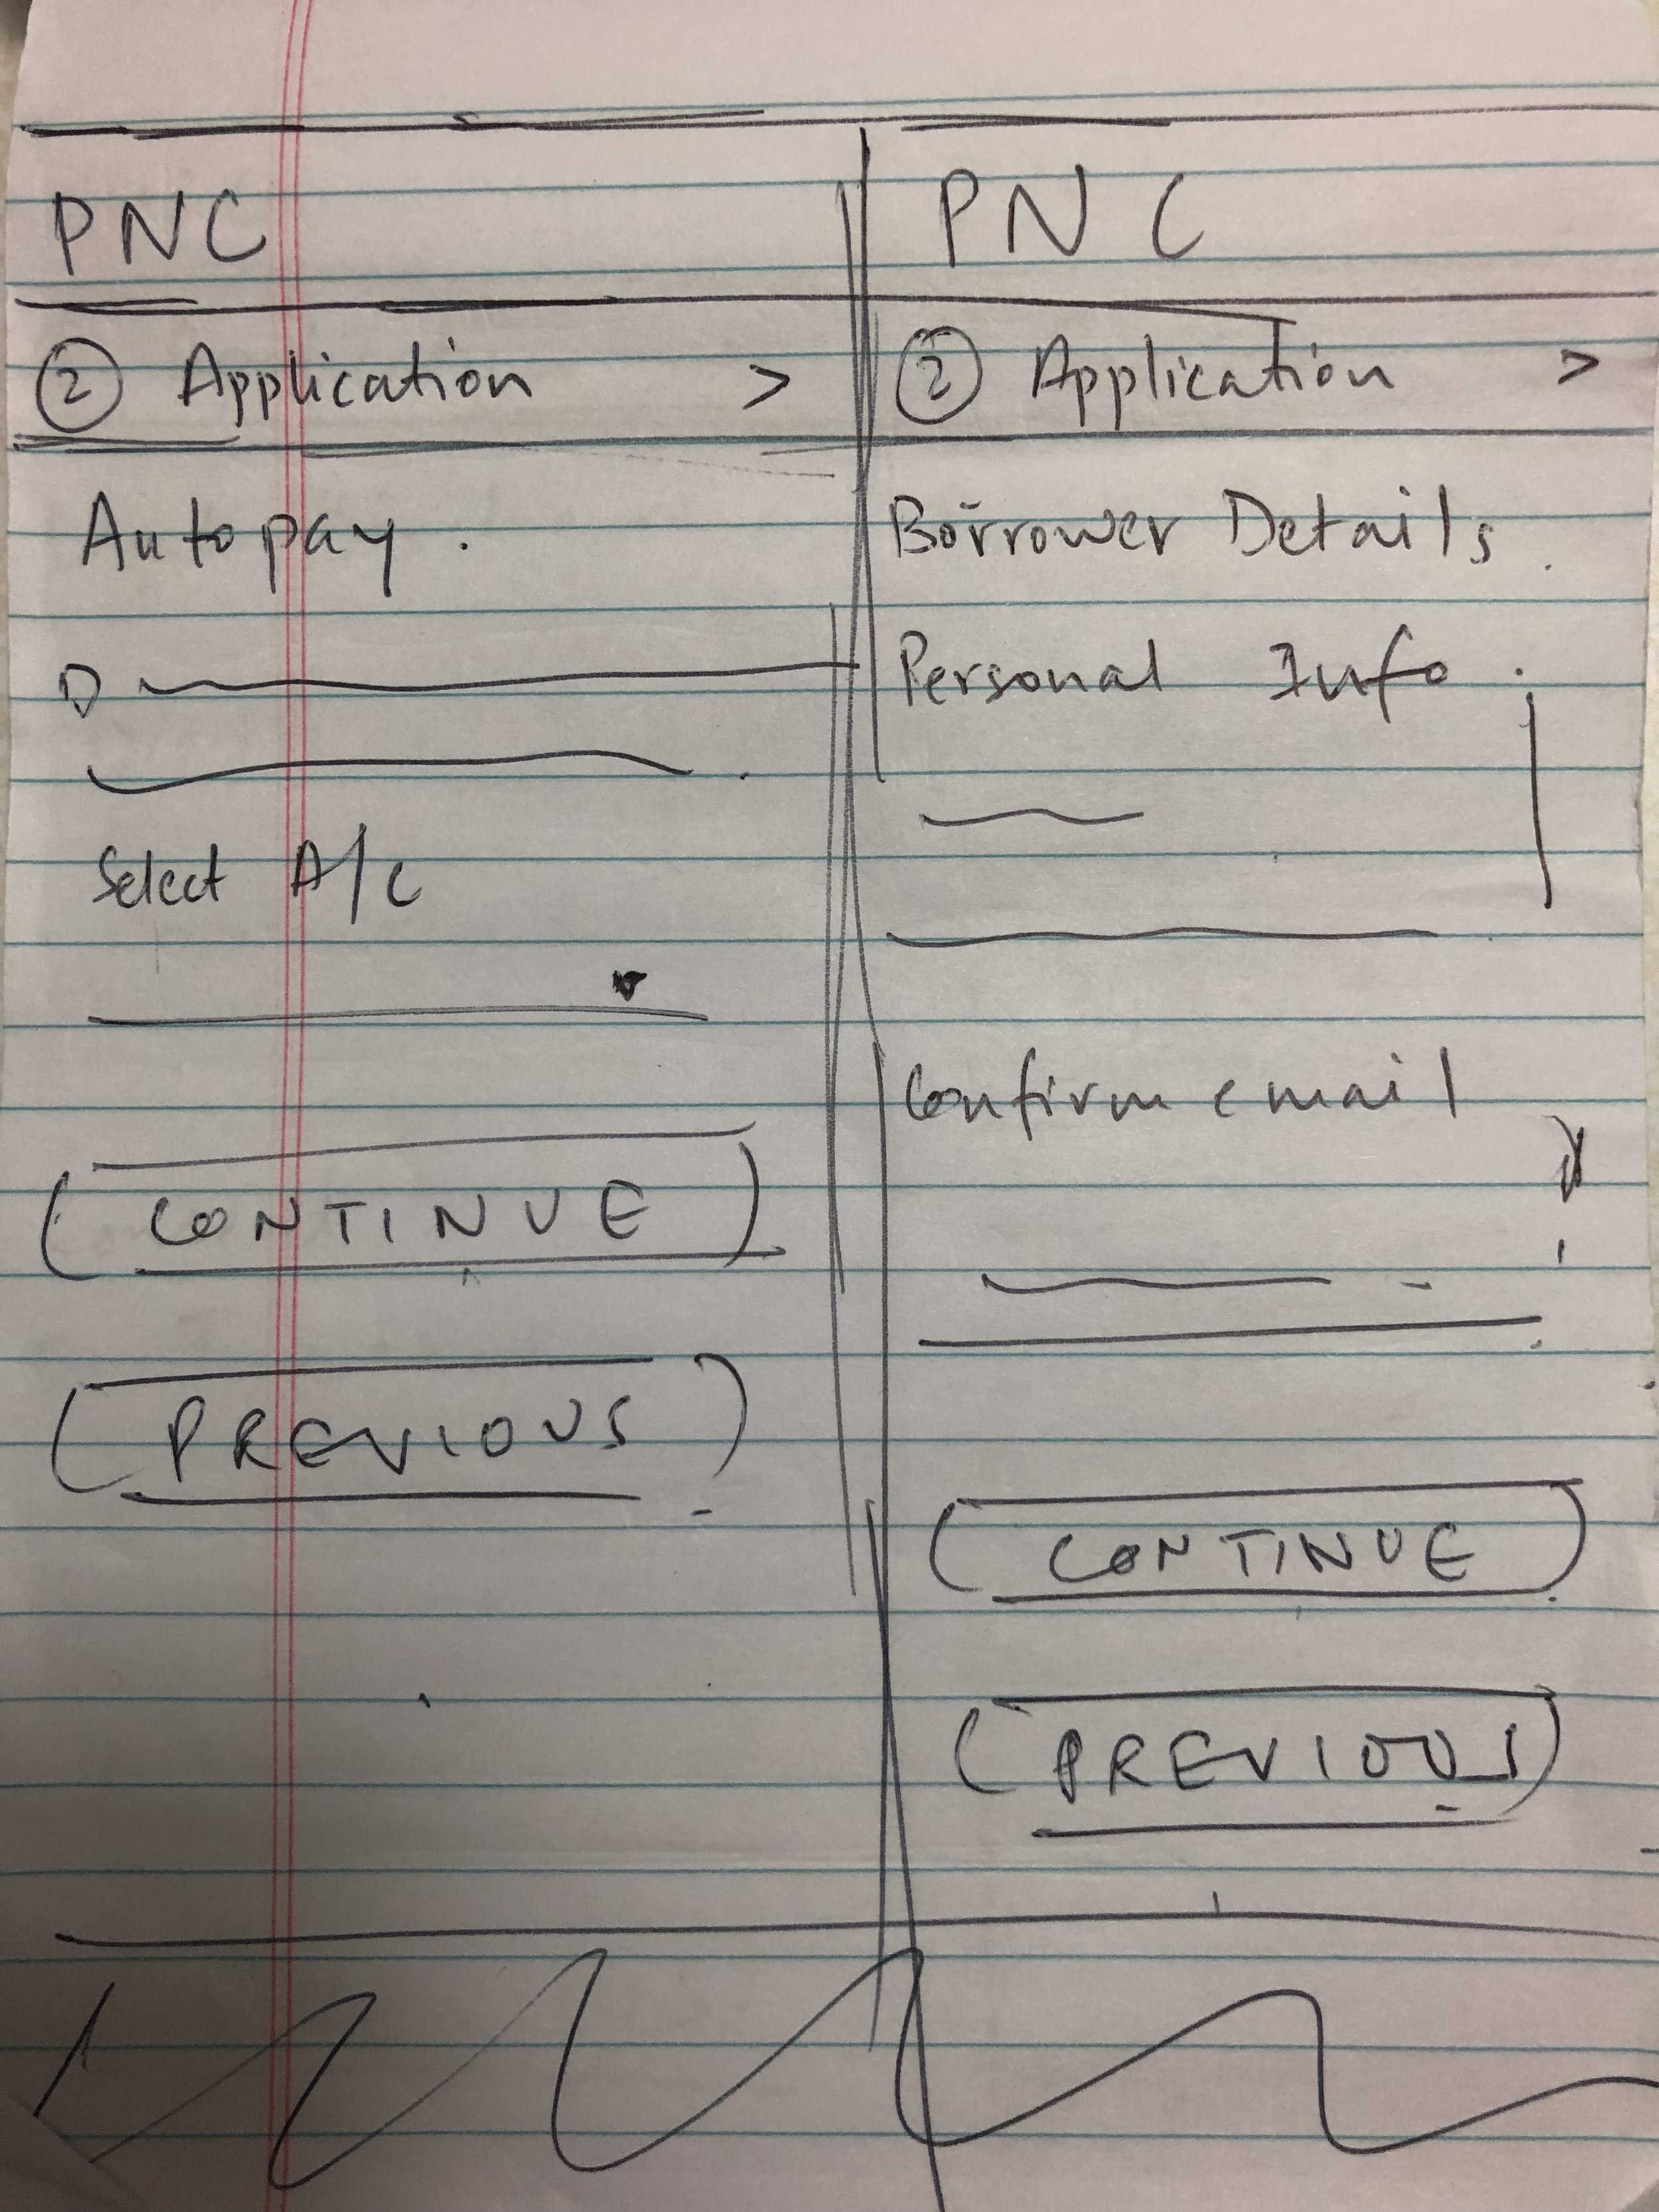 PNC
② Application >
Autopay.
Select A/c
CONTINUE
PREVIOUS
PNC
② Application >
Borrower Details.
Personal Info.
Confirm email
CONTINUE
PREVIOUS